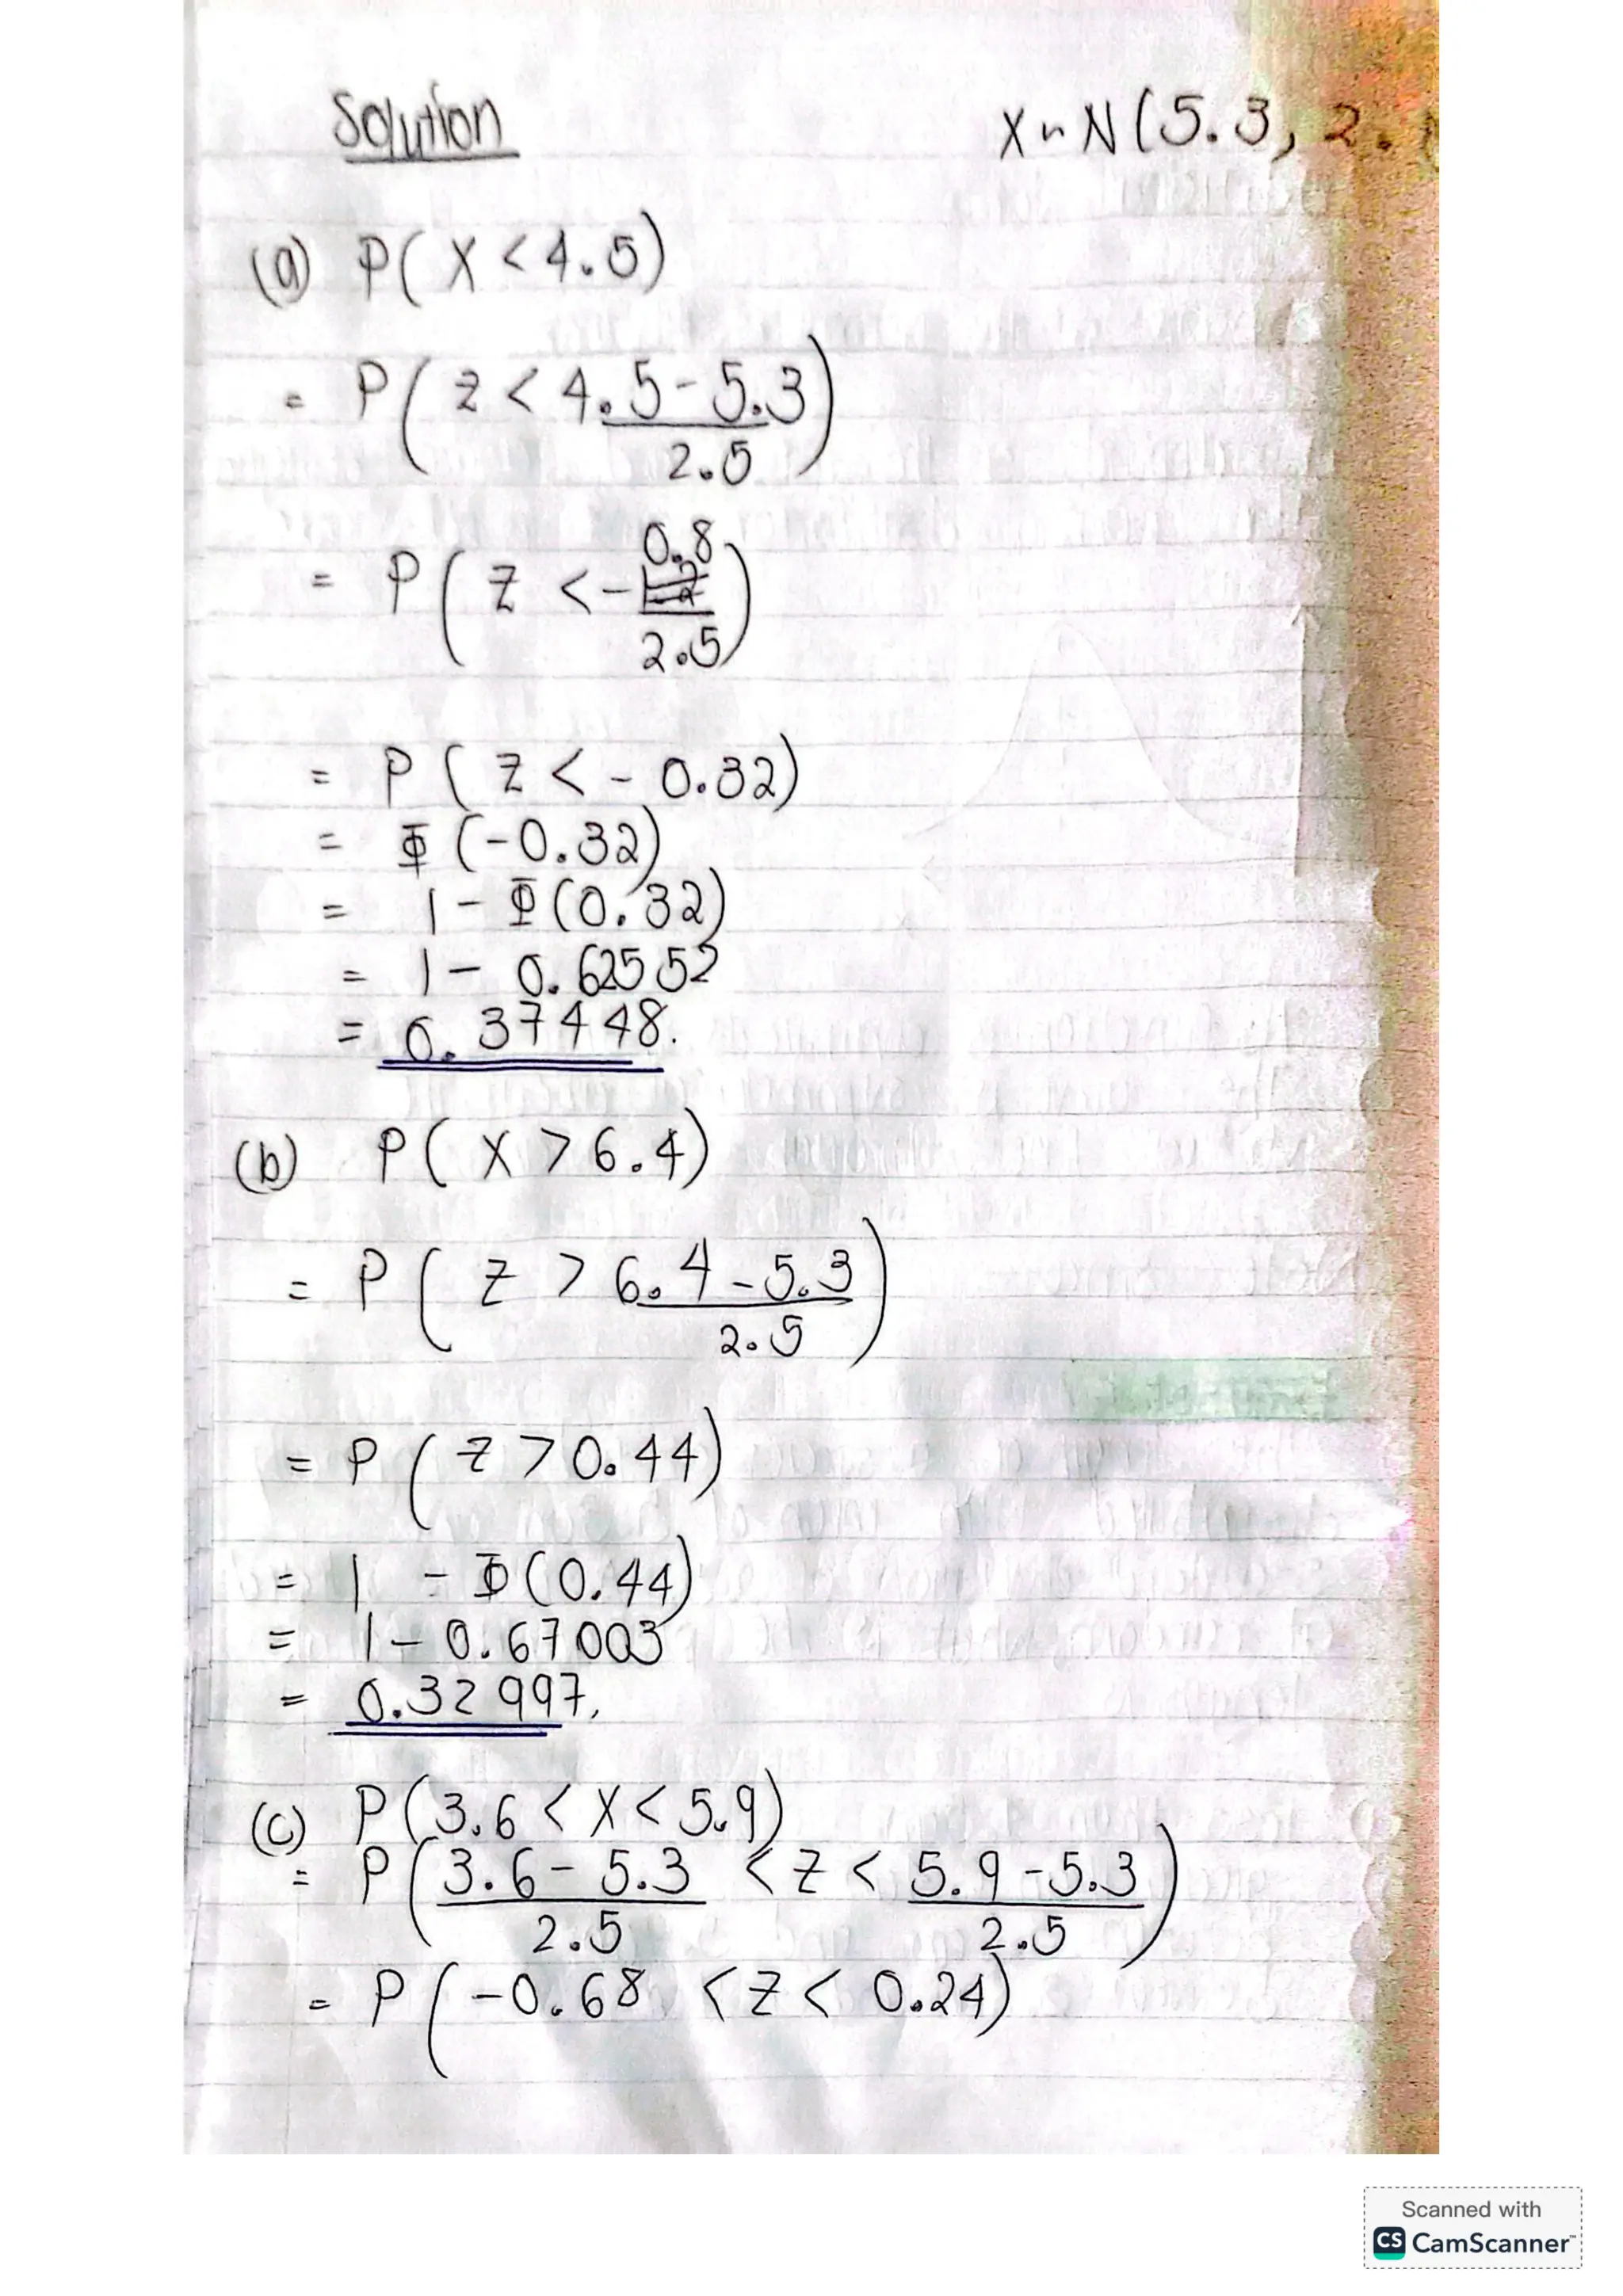 Solution
X ~ N(5.3, 2.
(a) P( X < 4.5)
= P( Z < 4.5 - 5.3 / 2.5 )
= P( Z < - 0.8 / 2.5 )
= P( Z < - 0.32)
= Φ (-0.32)
= 1 - Φ (0.32)
= 1 - 0.62552
= 0.37448.
(b) P( X > 6.4)
= P( Z > 6.4 - 5.3 / 2.5 )
= P( Z > 0.44)
= 1 - Φ (0.44)
= 1 - 0.67003
= 0.32997.
(c) P(3.6 < X < 5.9)
= P( 3.6 - 5.3 / 2.5 < Z < 5.9 - 5.3 / 2.5 )
= P( -0.68 < Z < 0.24)
Scanned with
CS CamScanner™